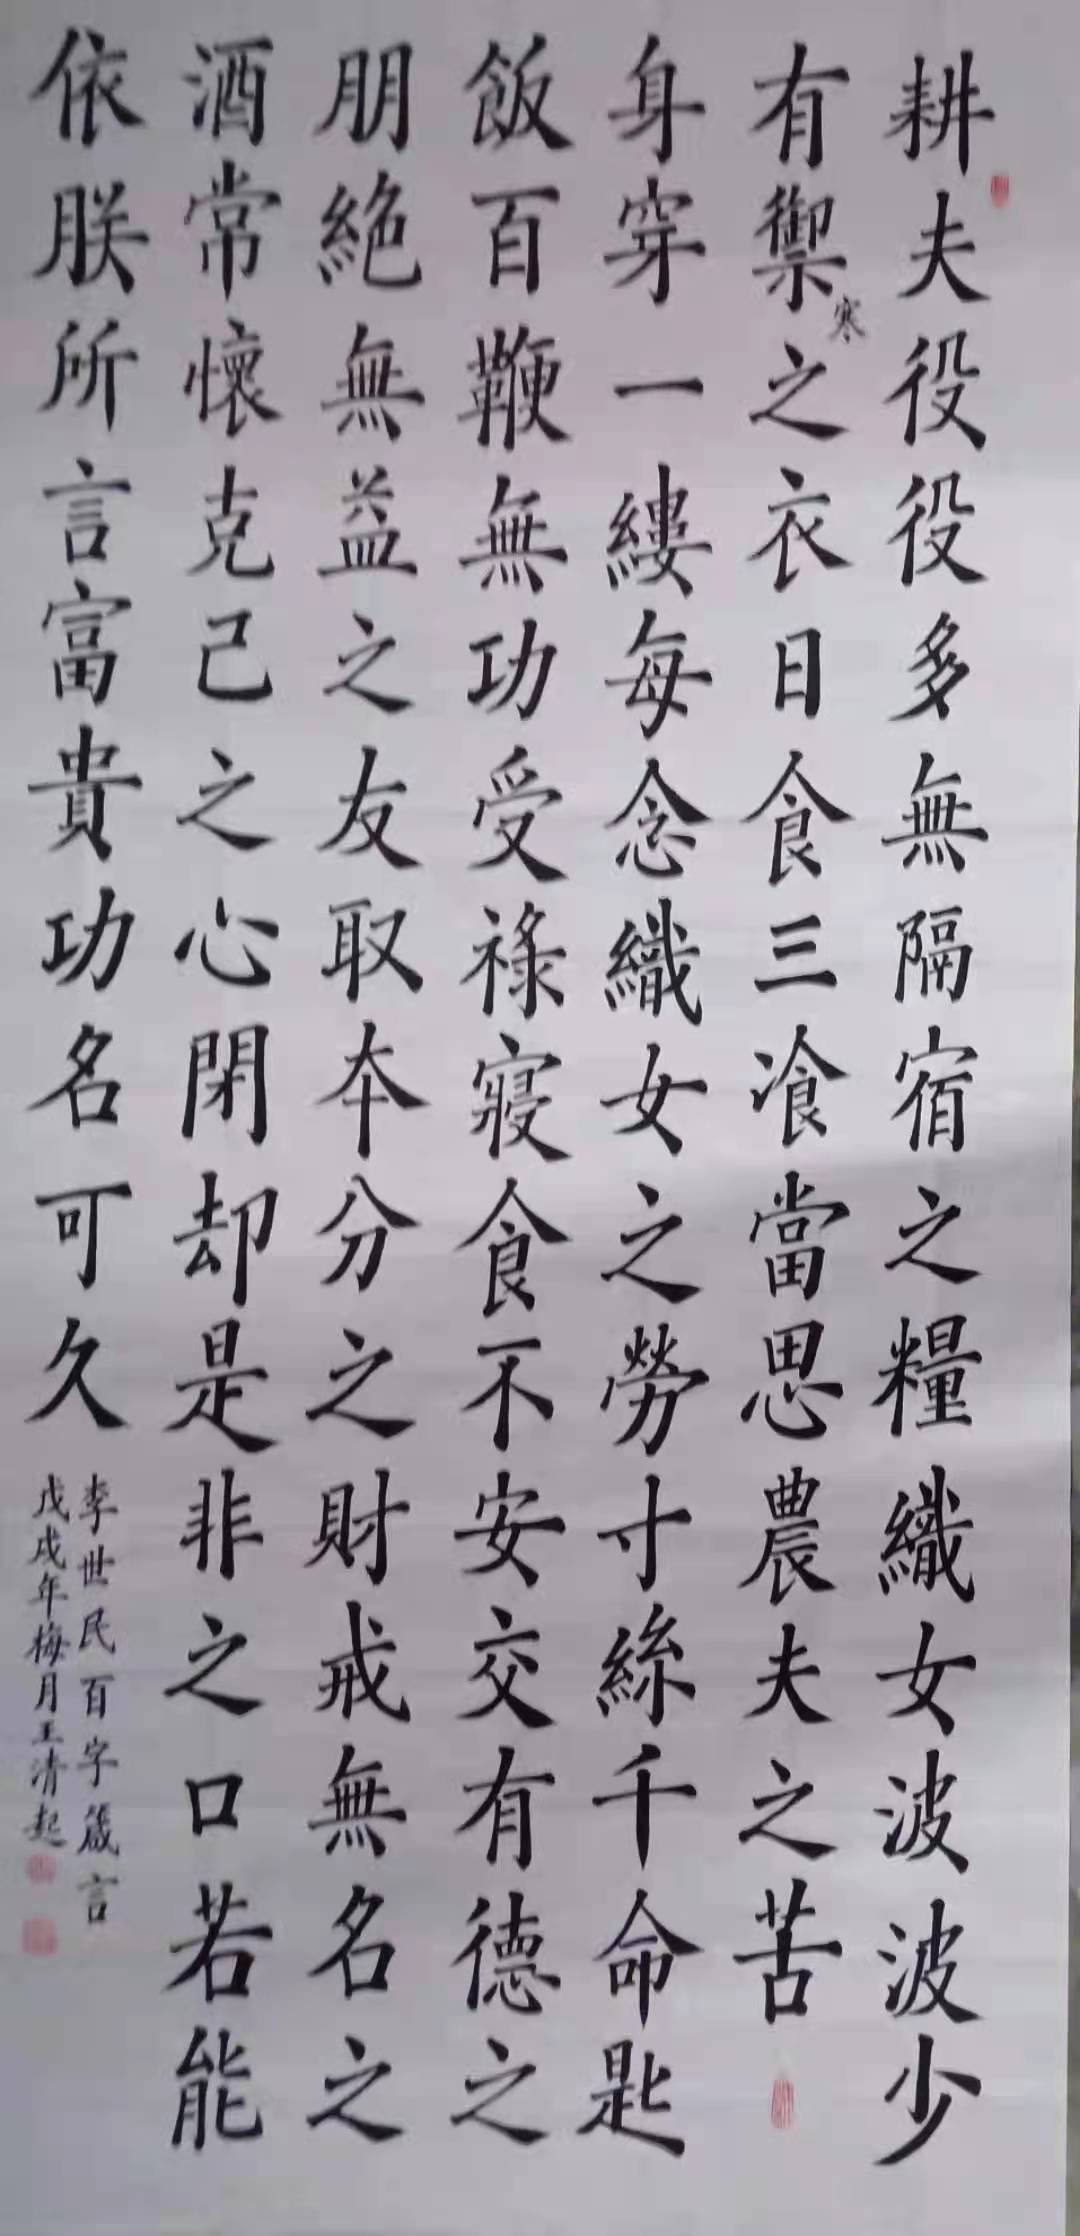 耕夫役役多無隔宿之糧織女波波少
有禦寒之衣日食三飡當思農夫之苦
身穿一縷每念織女之勞寸絲千命匙
飯百鞭無功受祿寢食不安交有德之
朋絕無益之友取本分之財戒無名之
酒常懷克己之心閑却是非之口若能
依朕所言富貴功名可久
李世民百字箴言
戊戌年梅月王清起